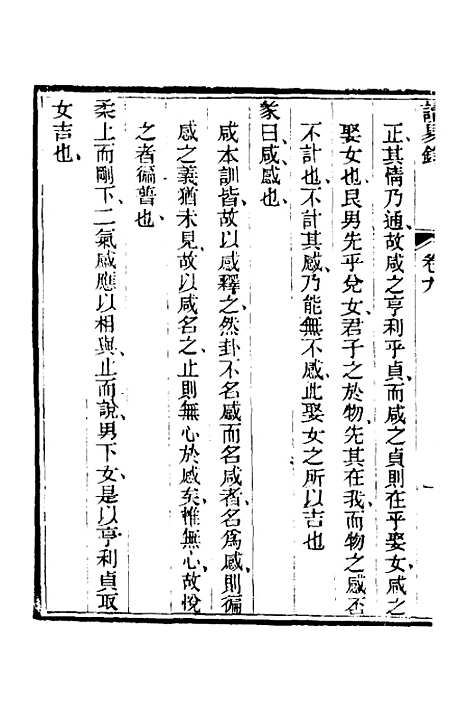 讀易錄
卷九
一
正其情乃通故咸之亨利乎貞而咸之貞則在乎娶女咸之
娶女也艮男先乎兌女君子之於物先其在我而物之感否
不計也不計其感乃能無不感此娶女之所以吉也
彖曰咸感也
咸本訓皆故以感釋之然卦不名感而名咸者名爲感則徧
感之義猶未見故以咸名之止則無心於感矣惟無心故悅
之者徧普也
柔上而剛下二氣感應以相與止而說男下女是以亨利貞取
女吉也